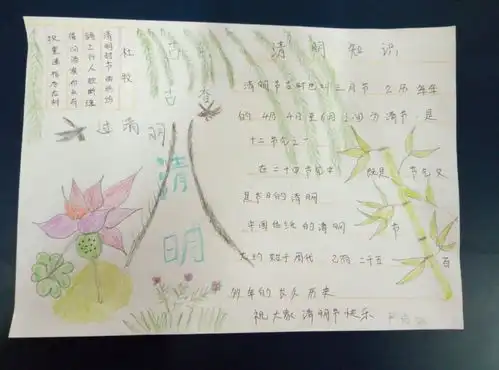 杜牧
清明时节雨纷纷
路上行人欲断魂
借问酒家何处有
牧童遥指杏花村
过清明
清明
清明知识
清明节古时也叫三月节 已历年年
的4月4日至6日之间为清节 是
十二节气之一
在二十四节气中 既是节气又
是节日的清明
中国传统的清明节
大约始于周代 已有二千五百
多年的长久历史
祝大家清明节快乐